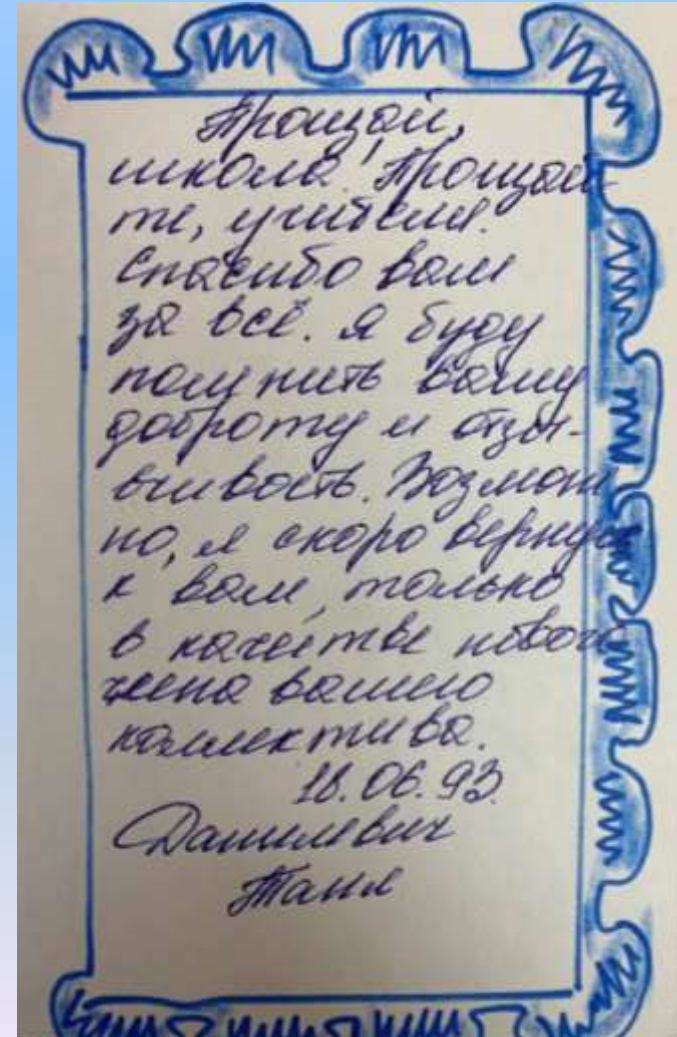 Прощай,
школа! Прощай-
те, учителя.
Спасибо вам
за всё. Я буду
помнить вашу
доброту и отзы-
вчивость. Возмож
но, я скоро вернусь
к вам, только
в качестве нового
члена вашего
коллектива.
18.06.93.
Данилевич
Таня